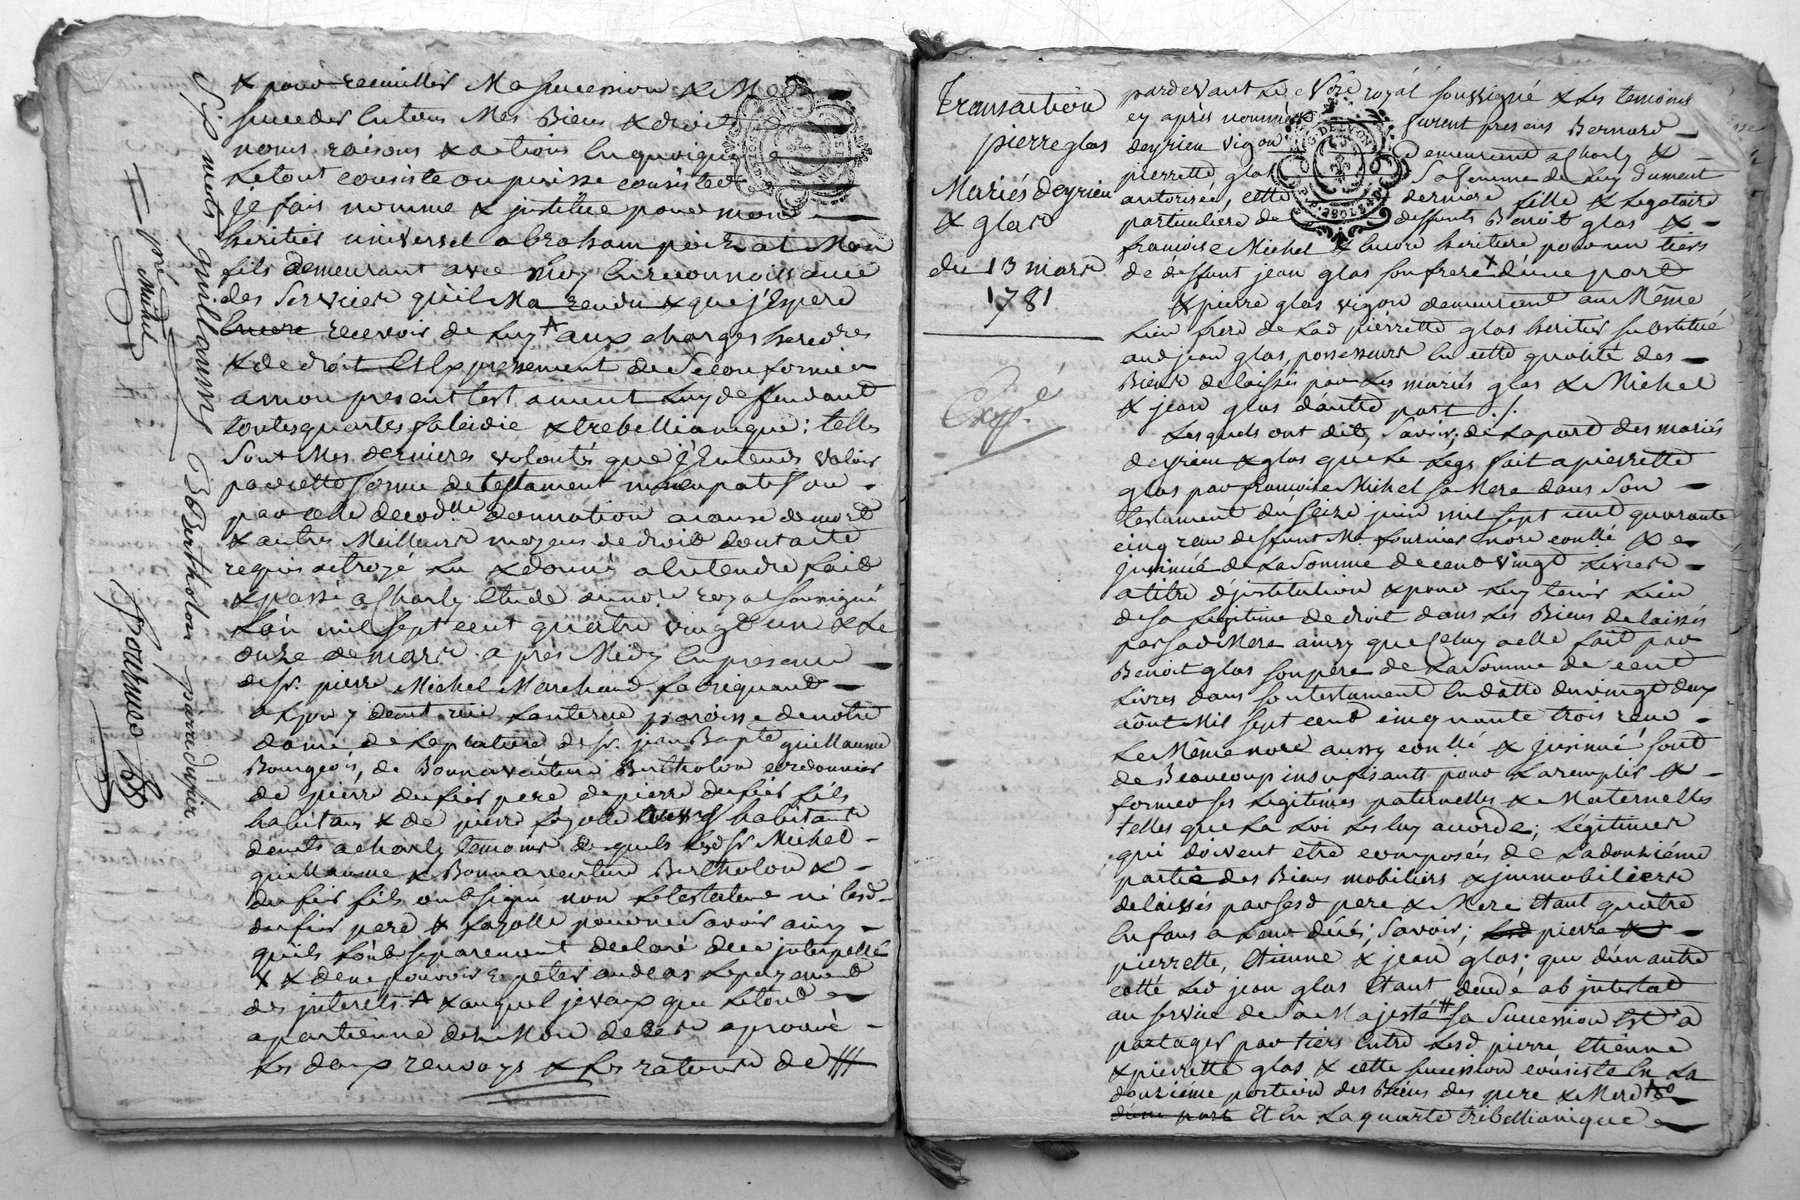 & pour recueillir Ma succession & Me
succeder En tous Mes Biens & droits
noms raisons & actions En quoi que
Le tout consiste ou puisse consister
je fais nomme & jnstitue pour mon
heritier universel abraham poizat Mon
fils demeurant avec Moy En reconnoissance
des services qu'il M'a rendu & que j'Espere
Encore recevoir de Luy aux charges heredres
& de droit Et Expressement de Se conformer
a mon present testament Luy deffendant
toutes quartes falcidie & trebellianique: telles
Sont Mes dernieres volontés que j'Entends valoir
par cette forme de testament nuncupatif ou
par celle de cod.lle donnation a cause de mort
& autres Meilleurs moyens de droit dont acte
requis octroyé Lu & donné a Entendre fait
& passé a Charly Etude du no.re royal soussigné
L'an mil sept cent quatre vingt un & Le
onze de mars après Midy En presence
de Sr. pierre Michel Marchand fabriquant
a Lyon y dem.t rüe Lanterne paroisse de notre
dame de La platiere de Sr. jean Bapte guillaume
Bourgeois, de Bonnaventure Bertholon cordonnier
de pierre dufier pere de pierre dufier fils
habitans & de pierre Lazolle habitants
demts a charly temoins desquels Lesd Sr Michel
guillaume & Bonnaventure Bertholon &
dufier fils ont signé non Le testateur ni lesd
dufier pere & Lazolle pour ne Savoir ainsy
qu'ils L'ont separement declaré de ce jnterpellé
& de ne pouvoir repeter aud cas Le payement
des jnterets & auquel je veux que Le tout
apartienne dès Mon deces aprouvé
Les deux renvoys & Les ratures de
J B guillaume
B Bertholon
pierre dufier
pre Michel
fournier
Transaction
pierre glas
Mariés deyrieu
& glas
du 13 mars
1781
Expé
pardevant Le No.re royal soussigné & Les temoins
cy après nommés furent presens Bernard
deyrieu vigon demeurant a Charly &
pierrette glas Sa femme de Luy dument
autorisée, cette derniere fille & Legataire
particuliere de deffunts Benoit glas &
francoise Michel & Encore heritiere pour un tiers
de deffunt jean glas son frere d'une part
& pierre glas vigon demeurant au Même
Lieu frere de Lad pierrette glas heritier substitué
aud jean glas, possesseur En cette qualité des
Biens delaissés par Les mariés glas & Michel
& jean glas d'autre part ./.
Lesquels ont dit, Savoir, de La part des mariés
deyrieu & glas que Le Legs fait a pierrette
glas par francoise Michel sa Mere dans Son
testament du Seize juin mil sept cent quarante
cinq reçu deffunt Me. fournier no.re conllé &
jnsinué de La Somme de cent vingt Livres
a titre d'jnstitution & pour Luy tenir Lieu
de sa Legitime de droit dans Les Biens delaissés
par sad Mere ainsy que Celuy a elle fait par
Benoit glas son pere de La Somme de cent
Livres dans son testament En datte du vingt deux
août Mil sept cent cinquante trois reçu
Le Même no.re aussy conllé & jnsinué sont
de Beaucoup insufisants pour La remplir &
former ses Legitimes paternelles & Maternelles
telles que La Loi Les luy accorde; Légitimes
qui doivent etre composées de La douziéme
partie des Biens mobiliers & jmmobiliers
delaissés par sesd pere & Mere Etant quatre
Enfans a Leur décés; Savoir; pierre
pierrette, Etienne & jean glas: que d'un autre
cotté Led jean glas Etant decedé ab jntestat
au service de Sa Majesté sa Succession est a
partager par tiers Entre Lesd pierre Etienne
& pierrette glas & cette succession consiste En La
douzieme portion des Biens des pere & Mere
d'une part Et En La quarte trebellianique